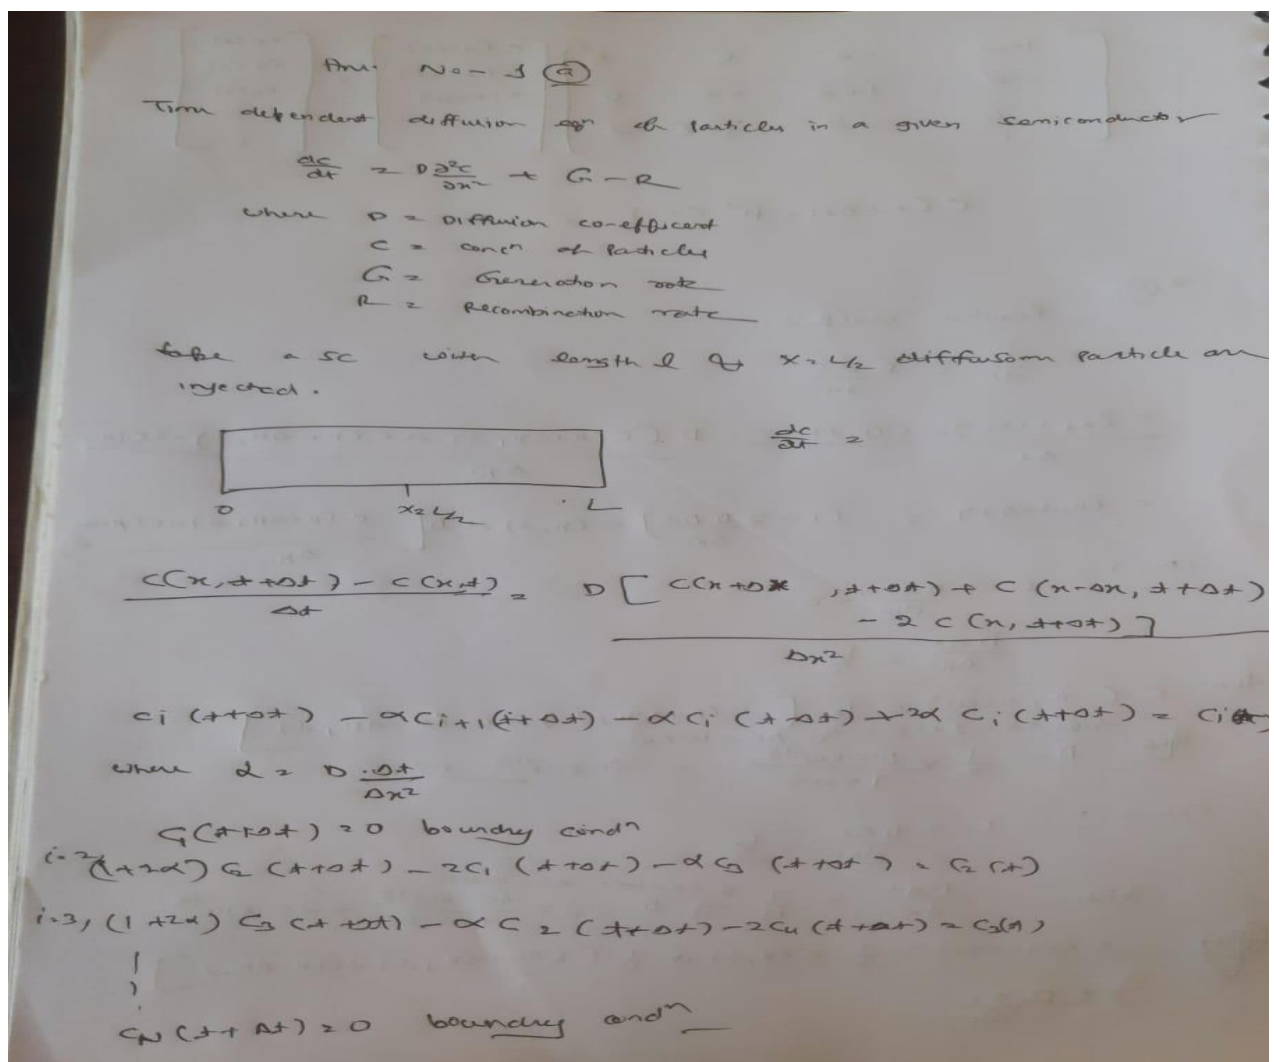 Ans. No - 1 (a)
Time dependent diffusion eqn of particles in a given semiconductor
dc/dt = D ∂²c/∂x² + G - R
where D = Diffusion co-efficient
C = concn of Particles
G = Generation rate
R = Recombination rate
take a SC with length l & x = L/2 diffusion particle are
injected.
dc/dt =
0 x = L/2 L
(C(x, t+Δt) - C(x,t))/Δt = D [C(x+Δx, t+Δt) + C(x-Δx, t+Δt)
- 2C(x, t+Δt)]
Δx²
Ci (t+Δt) - αCi+1 (t+Δt) - αCi (t-Δt) + 2α Ci (t+Δt) = Ci
where α = D · Δt/Δx²
C1(t+Δt) = 0 boundry condn
i=2, (1+2α) C2 (t+Δt) - 2C1 (t+Δt) - αC3 (t+Δt) = C2 (t)
i=3, (1+2α) C3 (t+Δt) - αC2 (t+Δt) - 2C4 (t+Δt) = C3(t)
CN (t+Δt) = 0 boundry condn